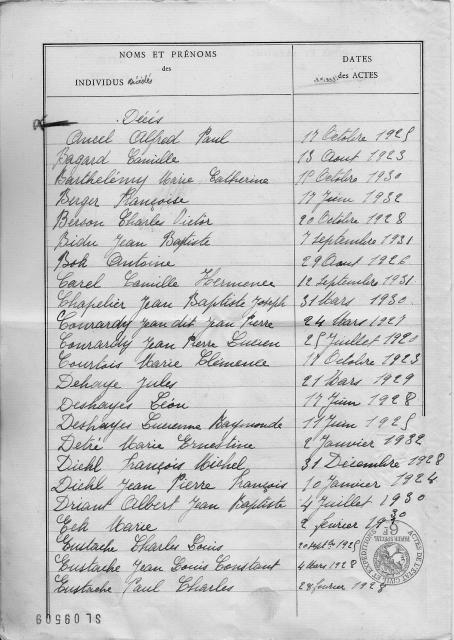 NOMS ET PRÉNOMS
des
INDIVIDUS Décédés
DATES
des ACTES
Décès
Ancel Alfred Paul 17 Octobre 1925
Bagard Camille 13 Aout 1923
Barthélémy Marie Catherine Octobre 1930
Berger Françoise 17 Juin 1932
Berson Charles Victor 20 Octobre 1928
Bidu Jean Baptiste 7 Septembre 1931
Bok Antoine 29 Aout 1926
Carel Camille Hermence 12 Septembre 1931
Chapelier Jean Baptiste Joseph 31 Mars 1930
Conrardy Jean dit Jean Pierre 24 Mars 1927
Conrardy Jean Pierre Lucien 25 Juillet 1920
Courtois Marie Clémence Octobre 1923
Dehaye Jules 21 Mars 1929
Deshayes Léon 17 Juin 1928
Deshayes Lucienne Raymonde 11 Juin 1925
Detré Marie Ernestine 2 Janvier 1932
Diehl François Michel 31 Décembre 1928
Diehl Jean Pierre François 10 Janvier 1924
Driant Albert Jean Baptiste 4 Juillet 1930
Eck Marie 2 février 1930
Eustache Charles Louis 20 Septbre 1925
Eustache Jean Louis Constant 4 Mars 1928
Eustache Paul Charles 28 février 1928
SL 09509